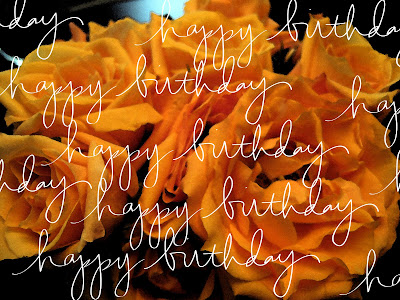 day happy birthday
happy birthday
ha
happy birthday
hday happy birthday
happy birthday